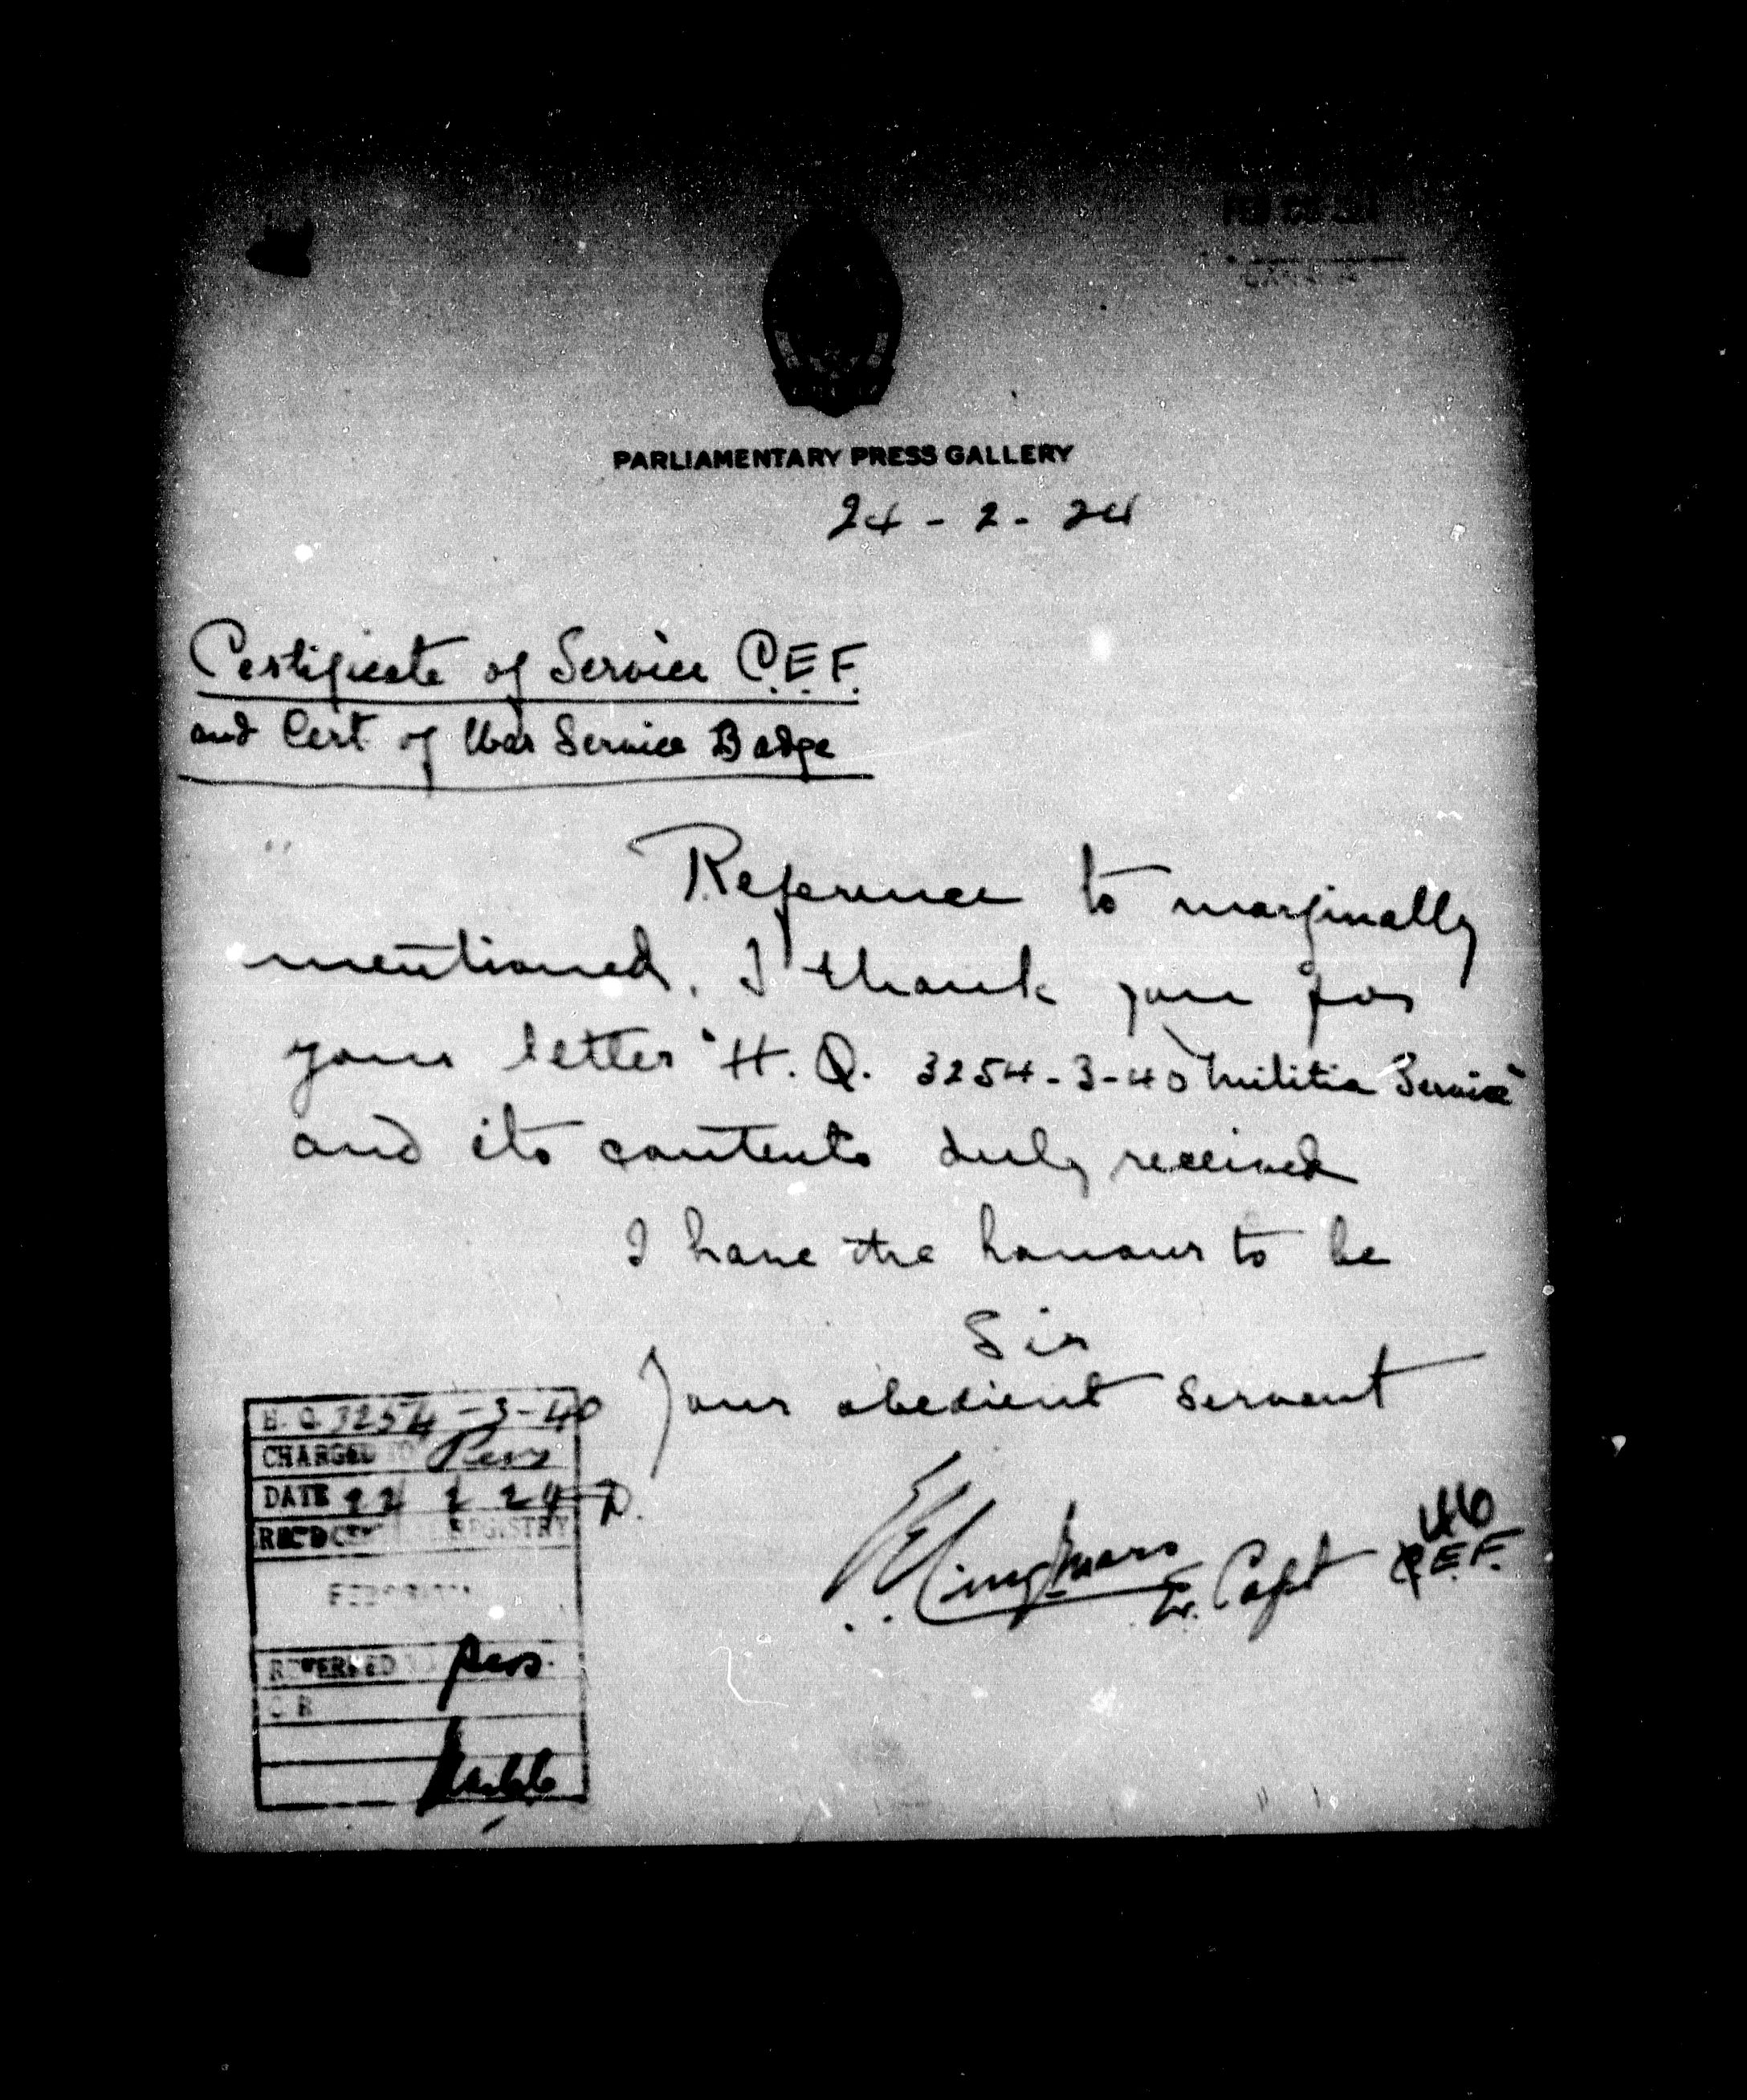 PARLIAMENTARY PRESS GALLERY
24 - 2 - 24
Certificate of Service C.E.F.
and Cert. of War Service Badge
Reference to marginally
mentioned, I thank you for
your letter "H.Q. 3254-3-40 Militia Service"
and its contents duly received
I have the honour to be
Sir
Your obedient servant
Capt C.E.F.
H. Q. 3254-3-40
CHARGED TO Pers
DATE
REC'D CENTRAL REGISTRY
REFERRED TO pers.
C R